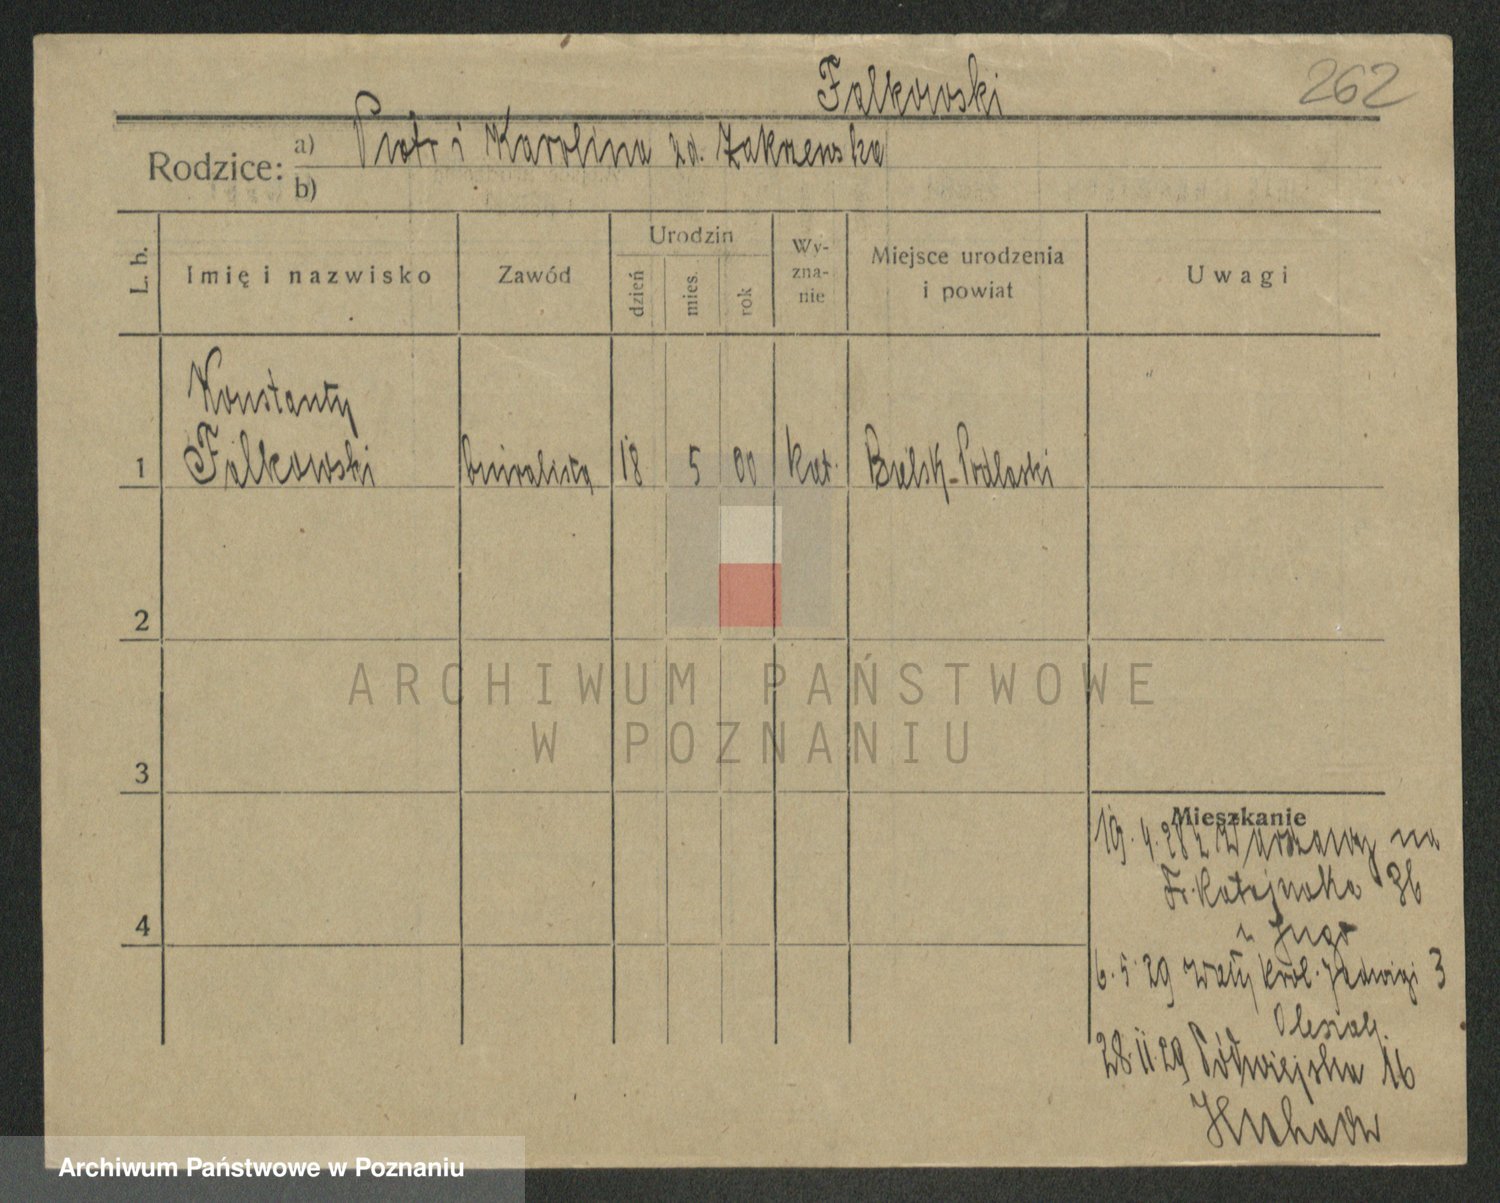 Falkowski
262
Rodzice:
a) Piotr i Karolina zd. Zakrzewska
b)
L. b.
Imię i nazwisko
Zawód
Urodzin
dzień
mies.
rok
Wy-
zna-
nie
Miejsce urodzenia
i powiat
Uwagi
Konstanty
1 Falkowski biuralista 18 5 00 kat. Bielsk-Podlaski
2
ARCHIWUM PAŃSTWOWE
W POZNANIU
3
Mieszkanie
19.4.28 z Warszawy na
Fr. Ratajczaka 36
u
6.5.29 Wały Król. Jadwigi 3
4
28.11.29 Półwiejska 16
Archiwum Państwowe w Poznaniu